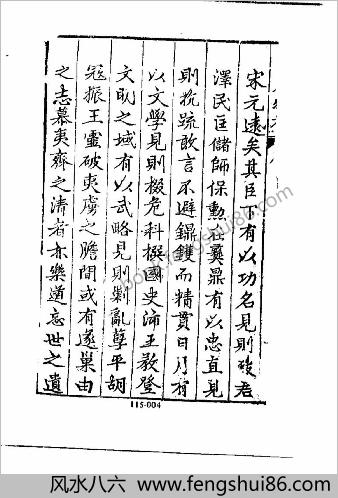 宋元遠矣其臣下有以功名見則致君
澤民匡儲師保勲在彝鼎有以忠直見
則抗疏敢言不避鑊而精貫日月有
以文學見則掇危科撰國史沛王教登
文之域有以武略見則剿亂孽平胡
冦振王靈破夷虜之膽間或有遂巢由
之志慕夷齊之清者亦樂道忘世之遺
115-004
www.fengshui86.com
风水八六 www.fengshui86.com